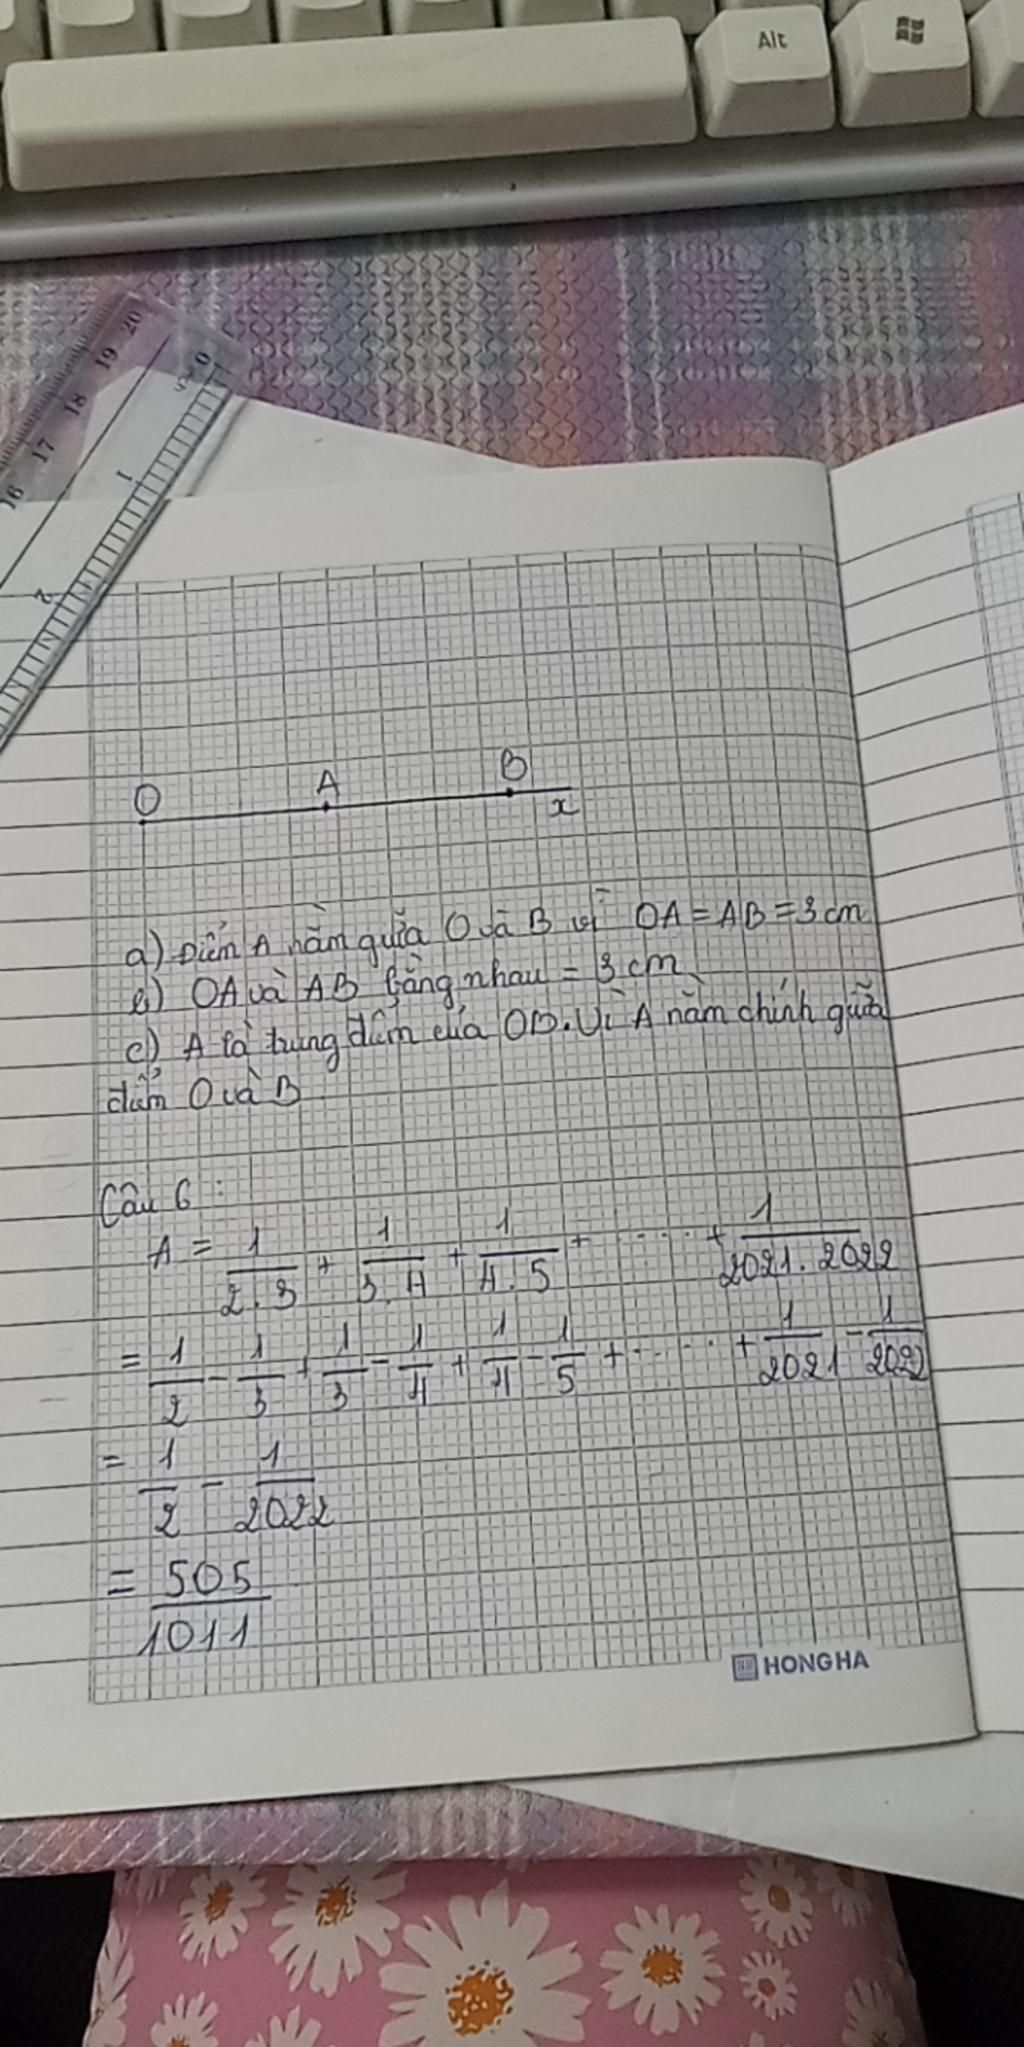 Alt
20
19
18
17
16
0 cm
1
2
O A B x
a) Điểm A nằm giữa O và B vì OA = AB = 3 cm
b) OA và AB bằng nhau = 3 cm
c) A là trung điểm của OB. Vì A nằm chính giữa
điểm O và B
Câu 6 :
A = 1/2.3 + 1/3.4 + 1/4.5 + ..... + 1/2021.2022
= 1/2 - 1/3 + 1/3 - 1/4 + 1/4 - 1/5 + ..... + 1/2021 - 1/2022
= 1/2 - 1/2022
= 505/1011
HONG HA